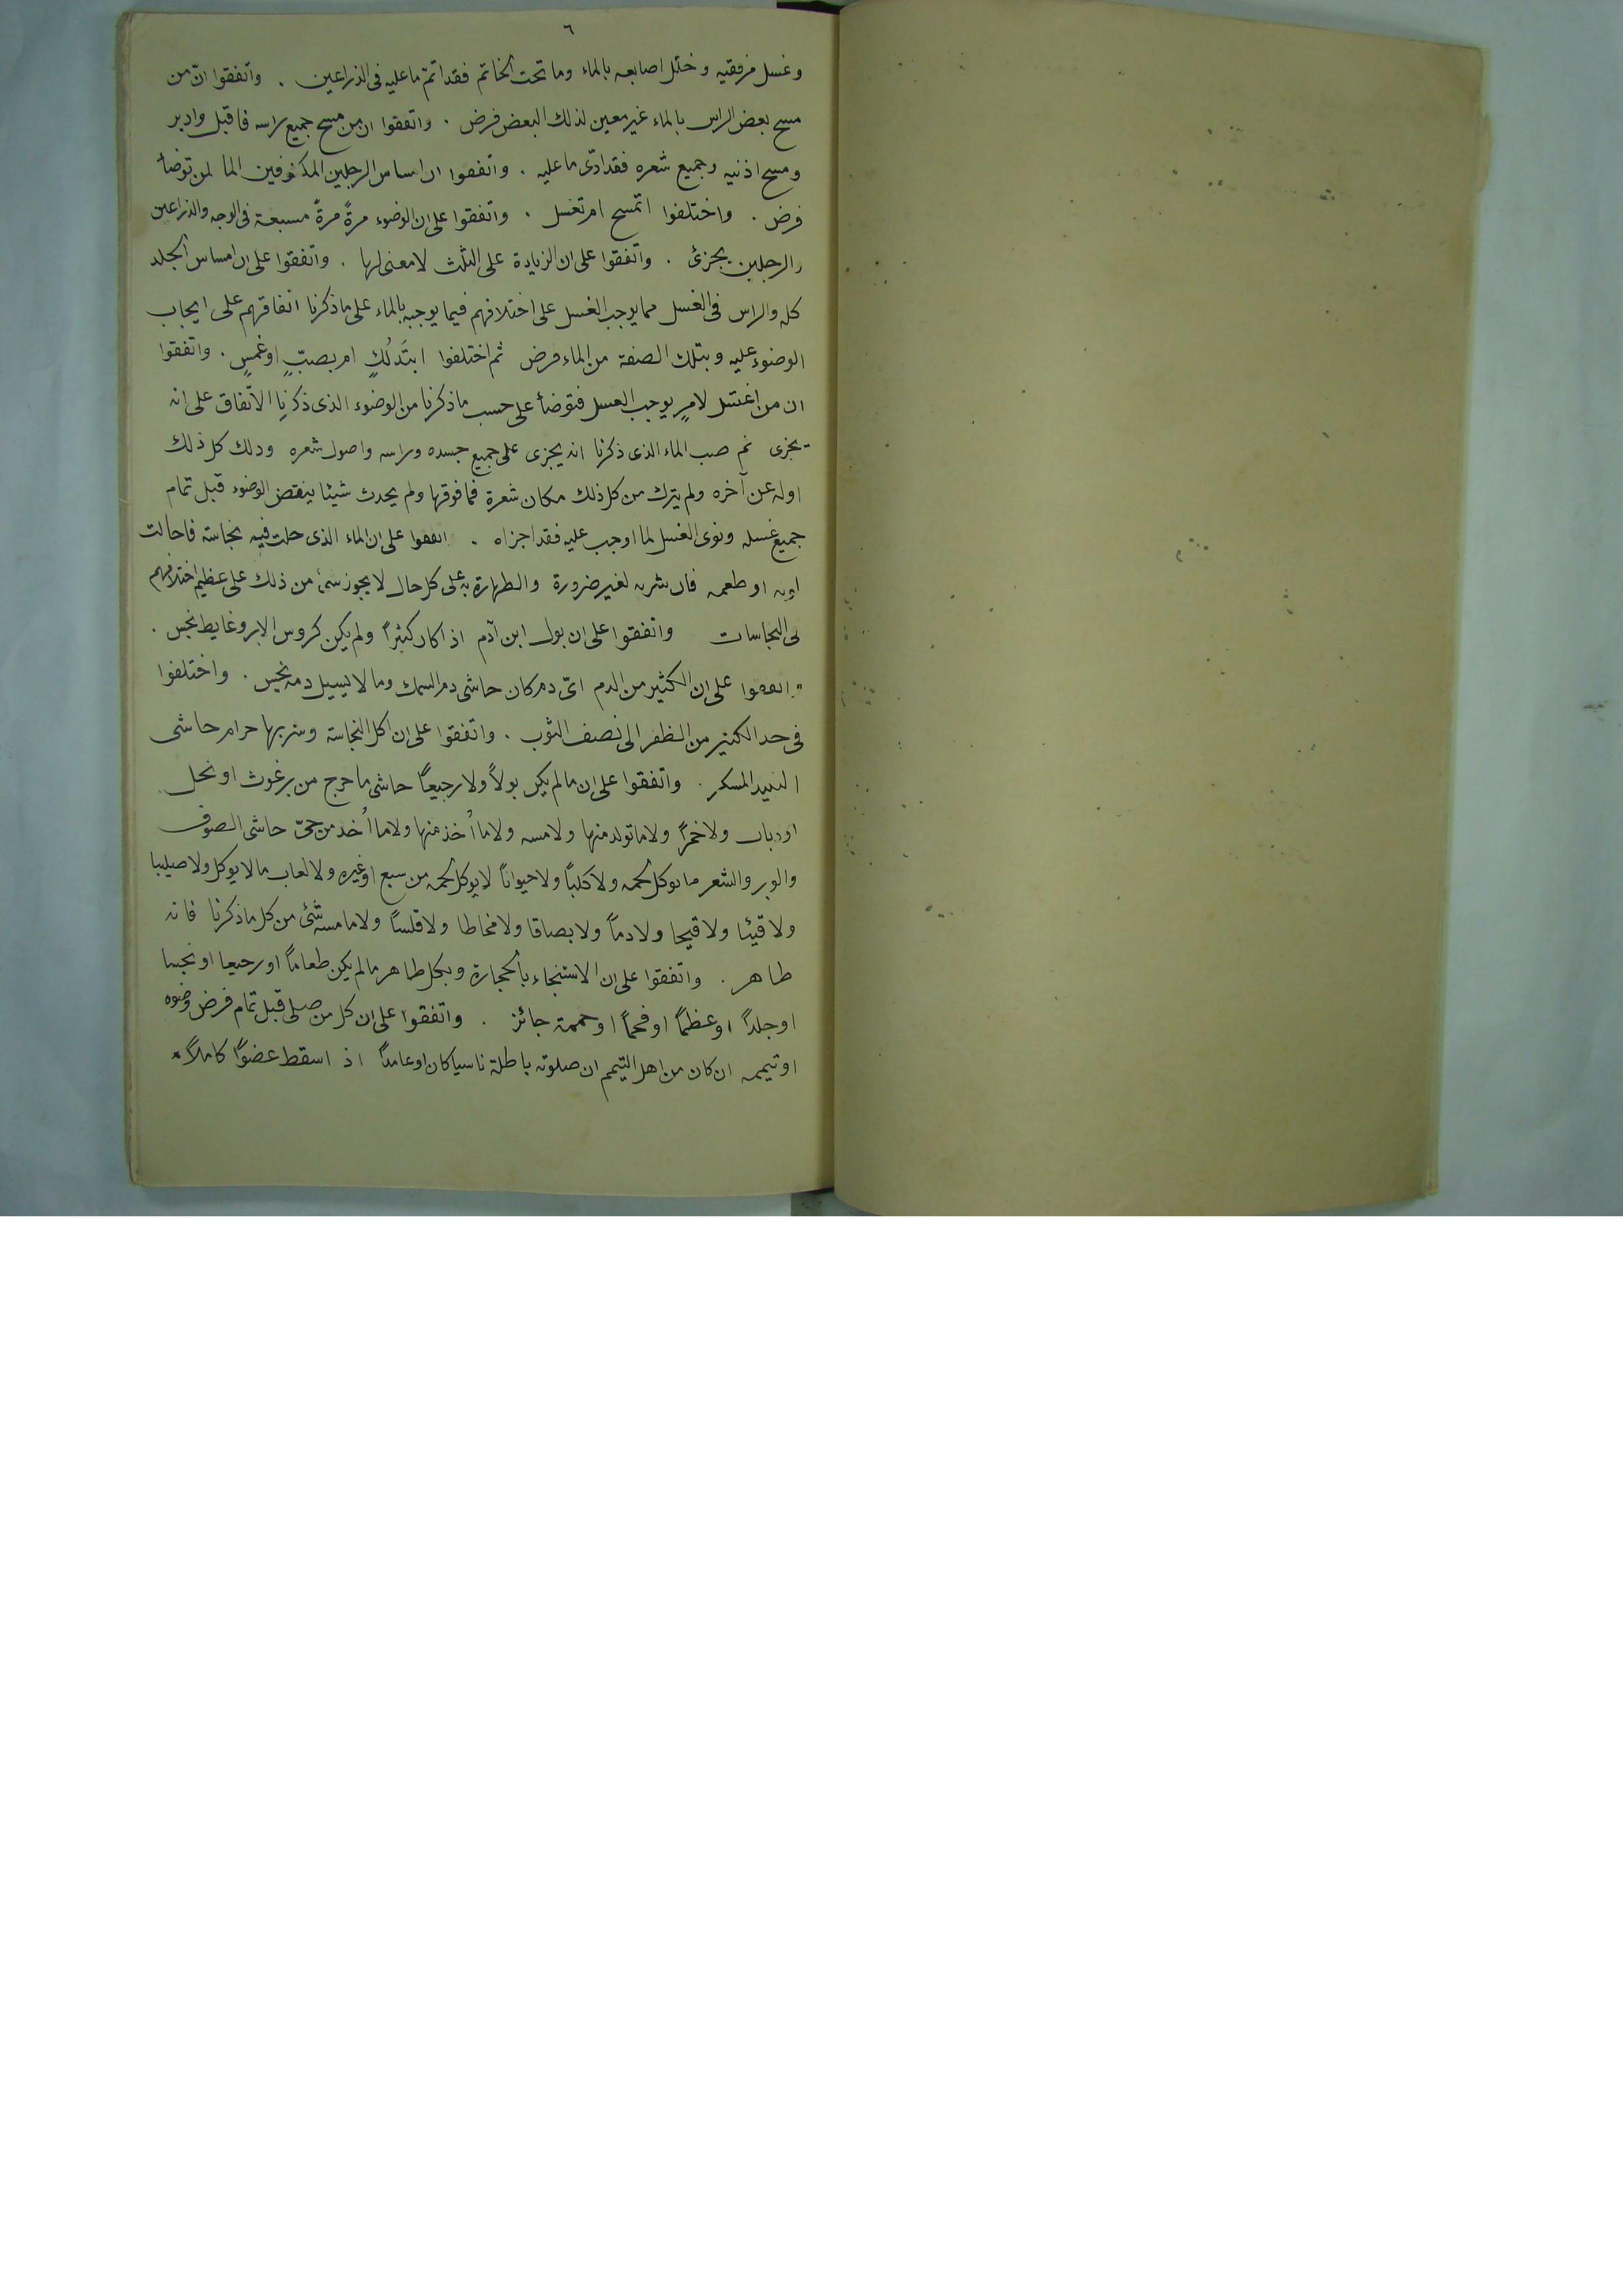 ٦
وغسل مرفقيه وخلل اصابعه بالماء وما تحت الخاتم فقد اتمّ ما عليه فى الذراعين . واتفقوا انّ من
مسح بعض الراس بالماء غير معين لذلك البعض فرض . واتفقوا ان من مسح جميع راسه فاقبل وادبر
ومسح اذنيه وجميع شعره فقد ادّى ما عليه . واتفقوا ان امساس الرجلين المكشوفين الما لمن توضأ
فرض . واختلفوا اتمسح ام تغسل . واتفقوا على ان الوضوء مرةً مرةً مسبعة فى الوجه والذراعين
والرجلين يجزئ . واتفقوا على ان الزيادة على الثلث لا معنى لها . واتفقوا على ان امساس الجلد
كله والراس فى الغسل مما يوجب الغسل على اختلافهم فيما يوجبه بالماء على ما ذكرنا اتفاقهم على ايجاب
الوضوء عليه وبتلك الصفة من الماء فرض ثم اختلفوا ابتَدلُكٍ ام بصبٍّ او غمسٍ . واتفقوا
ان من اغتسل لامرٍ يوجب الغسل فتوضأ على حسب ما ذكرنا من الوضوء الذى ذكرنا الاتّفاق على انه
يجزى ثم صب الماء الذى ذكرنا انه يجزى على جميع جسده وراسه واصول شعره ودلك كل ذلك
اوله عن آخره ولم يترك من كل ذلك مكان شعرة فما فوقها ولم يحدث شيئا ينقض الوضوء قبل تمام
جميع غسله ونوى الغسل لما اوجب عليه فقد اجزاه . اتفقوا على ان الماء الذى حلت فيه نجاسة فاحالت
لونه او طعمه فان شربه لغير ضرورة والطهارة به على كل حال لا يجوز شئ من ذلك على عظيم اختلافهم
فى النجاسات واتفقوا على ان بول ابن آدم اذا كان كثيراً ولم يكن كروس الابر وغايط نجس .
واتفقوا على ان الكثير من الدم اىّ دم كان حاشى دم السمك وما لا يسيل دمه نجس . واختلفوا
فى حد الكثير من الظفر الى نصف الثوب . واتفقوا على ان اكل النجاسة وشربها حرام حاشى
النبيد المسكر . واتفقوا على ان ما لم يكن بولاً ولا رجيعاً حاشى ما خرج من برغوث او نحل
او ذباب ولا خمراً ولا ما تولد منها ولا مسه ولا ما اُخذ منها ولا ما اُخد من حىّ حاشى الصوف
والوبر والشعر ما يوكل لحمه ولا كلباً ولا حيواناً لا يوكل لحمه من سبع او غيره ولا لعاب ما لا يوكل ولا صليبا
ولا قيئا ولا قيحا ولا دماً ولا بصاقا ولا مخاطا ولا قلساً ولا ما مسه شئ من كل ما ذكرنا فانه
طاهر . واتفقوا على ان الاستنجاء بالحجارة وبكل طاهر ما لم يكن طعاماً او رجيعا او نجسا
او جلداً او عظماً او فحماً او حممة جائز . واتفقوا على ان كل من صلى قبل تمام فرض وضوه
او تيممه ان كان من اهل التيمم ان صلوته باطلة ناسيا كان او عامداً اذ اسقط عضوًا كاملاً